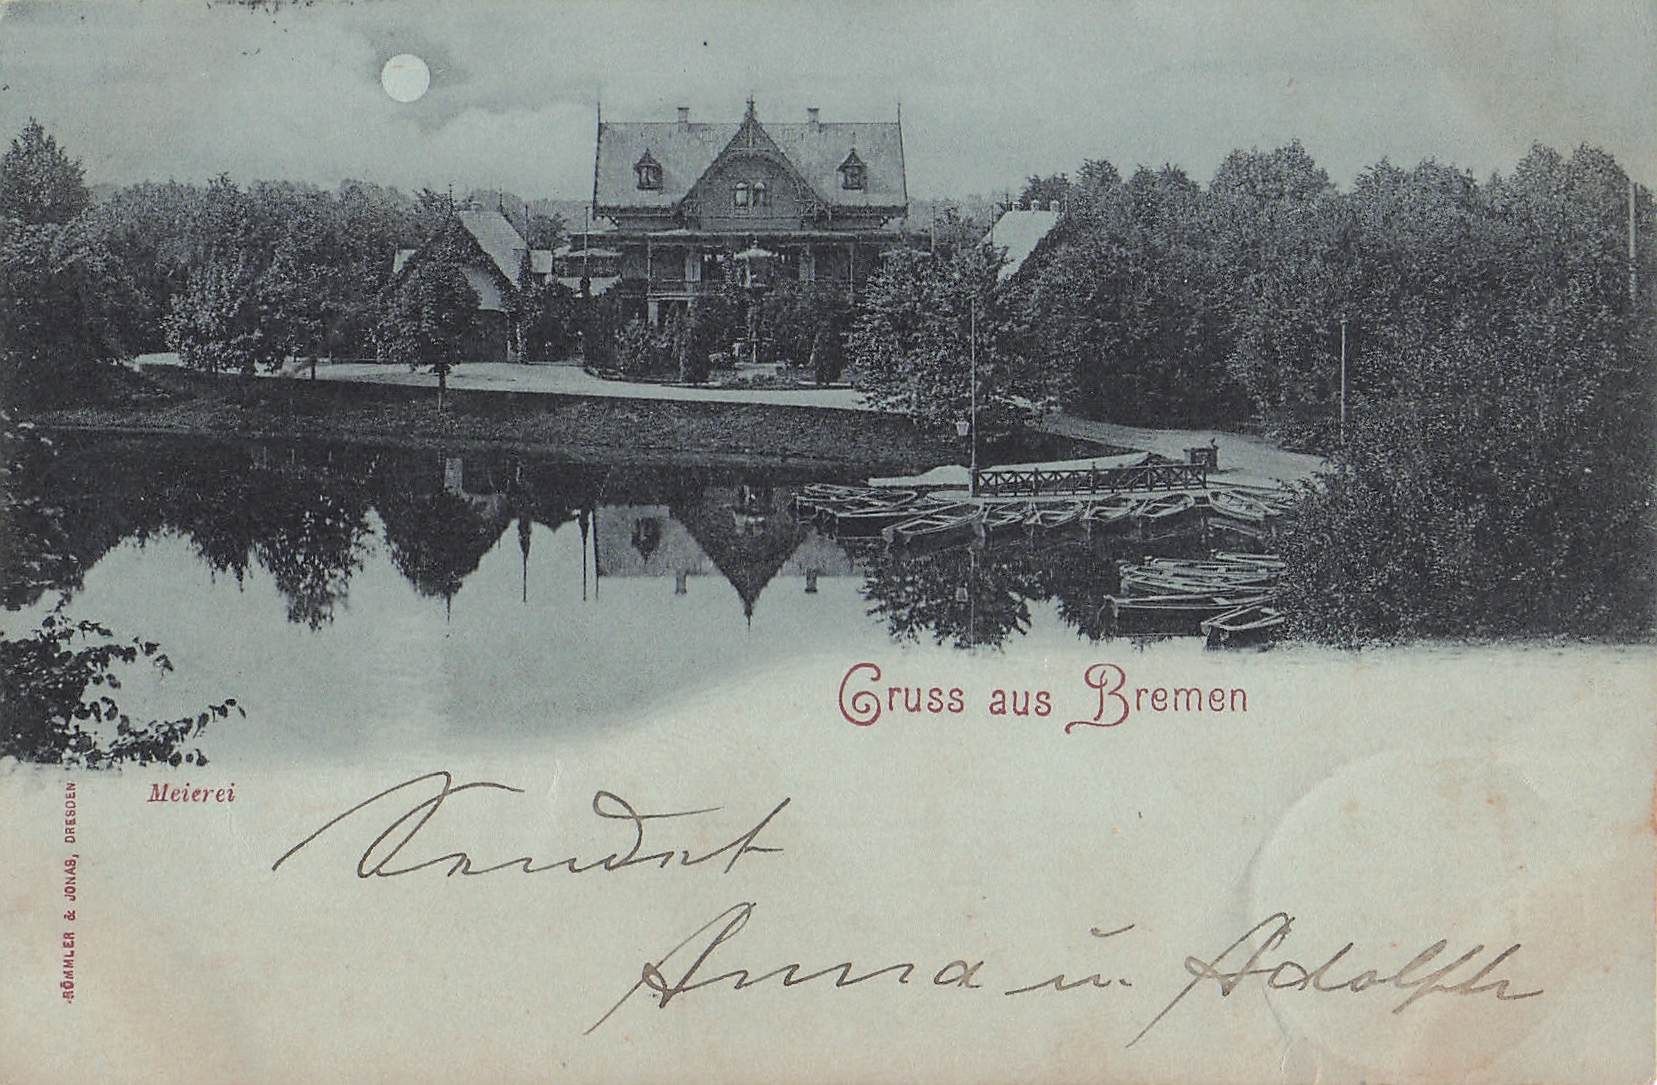 Gruss aus Bremen
Meierei
RÖMMLER & JONAS, DRESDEN
Sendet
Anna u. Adolph